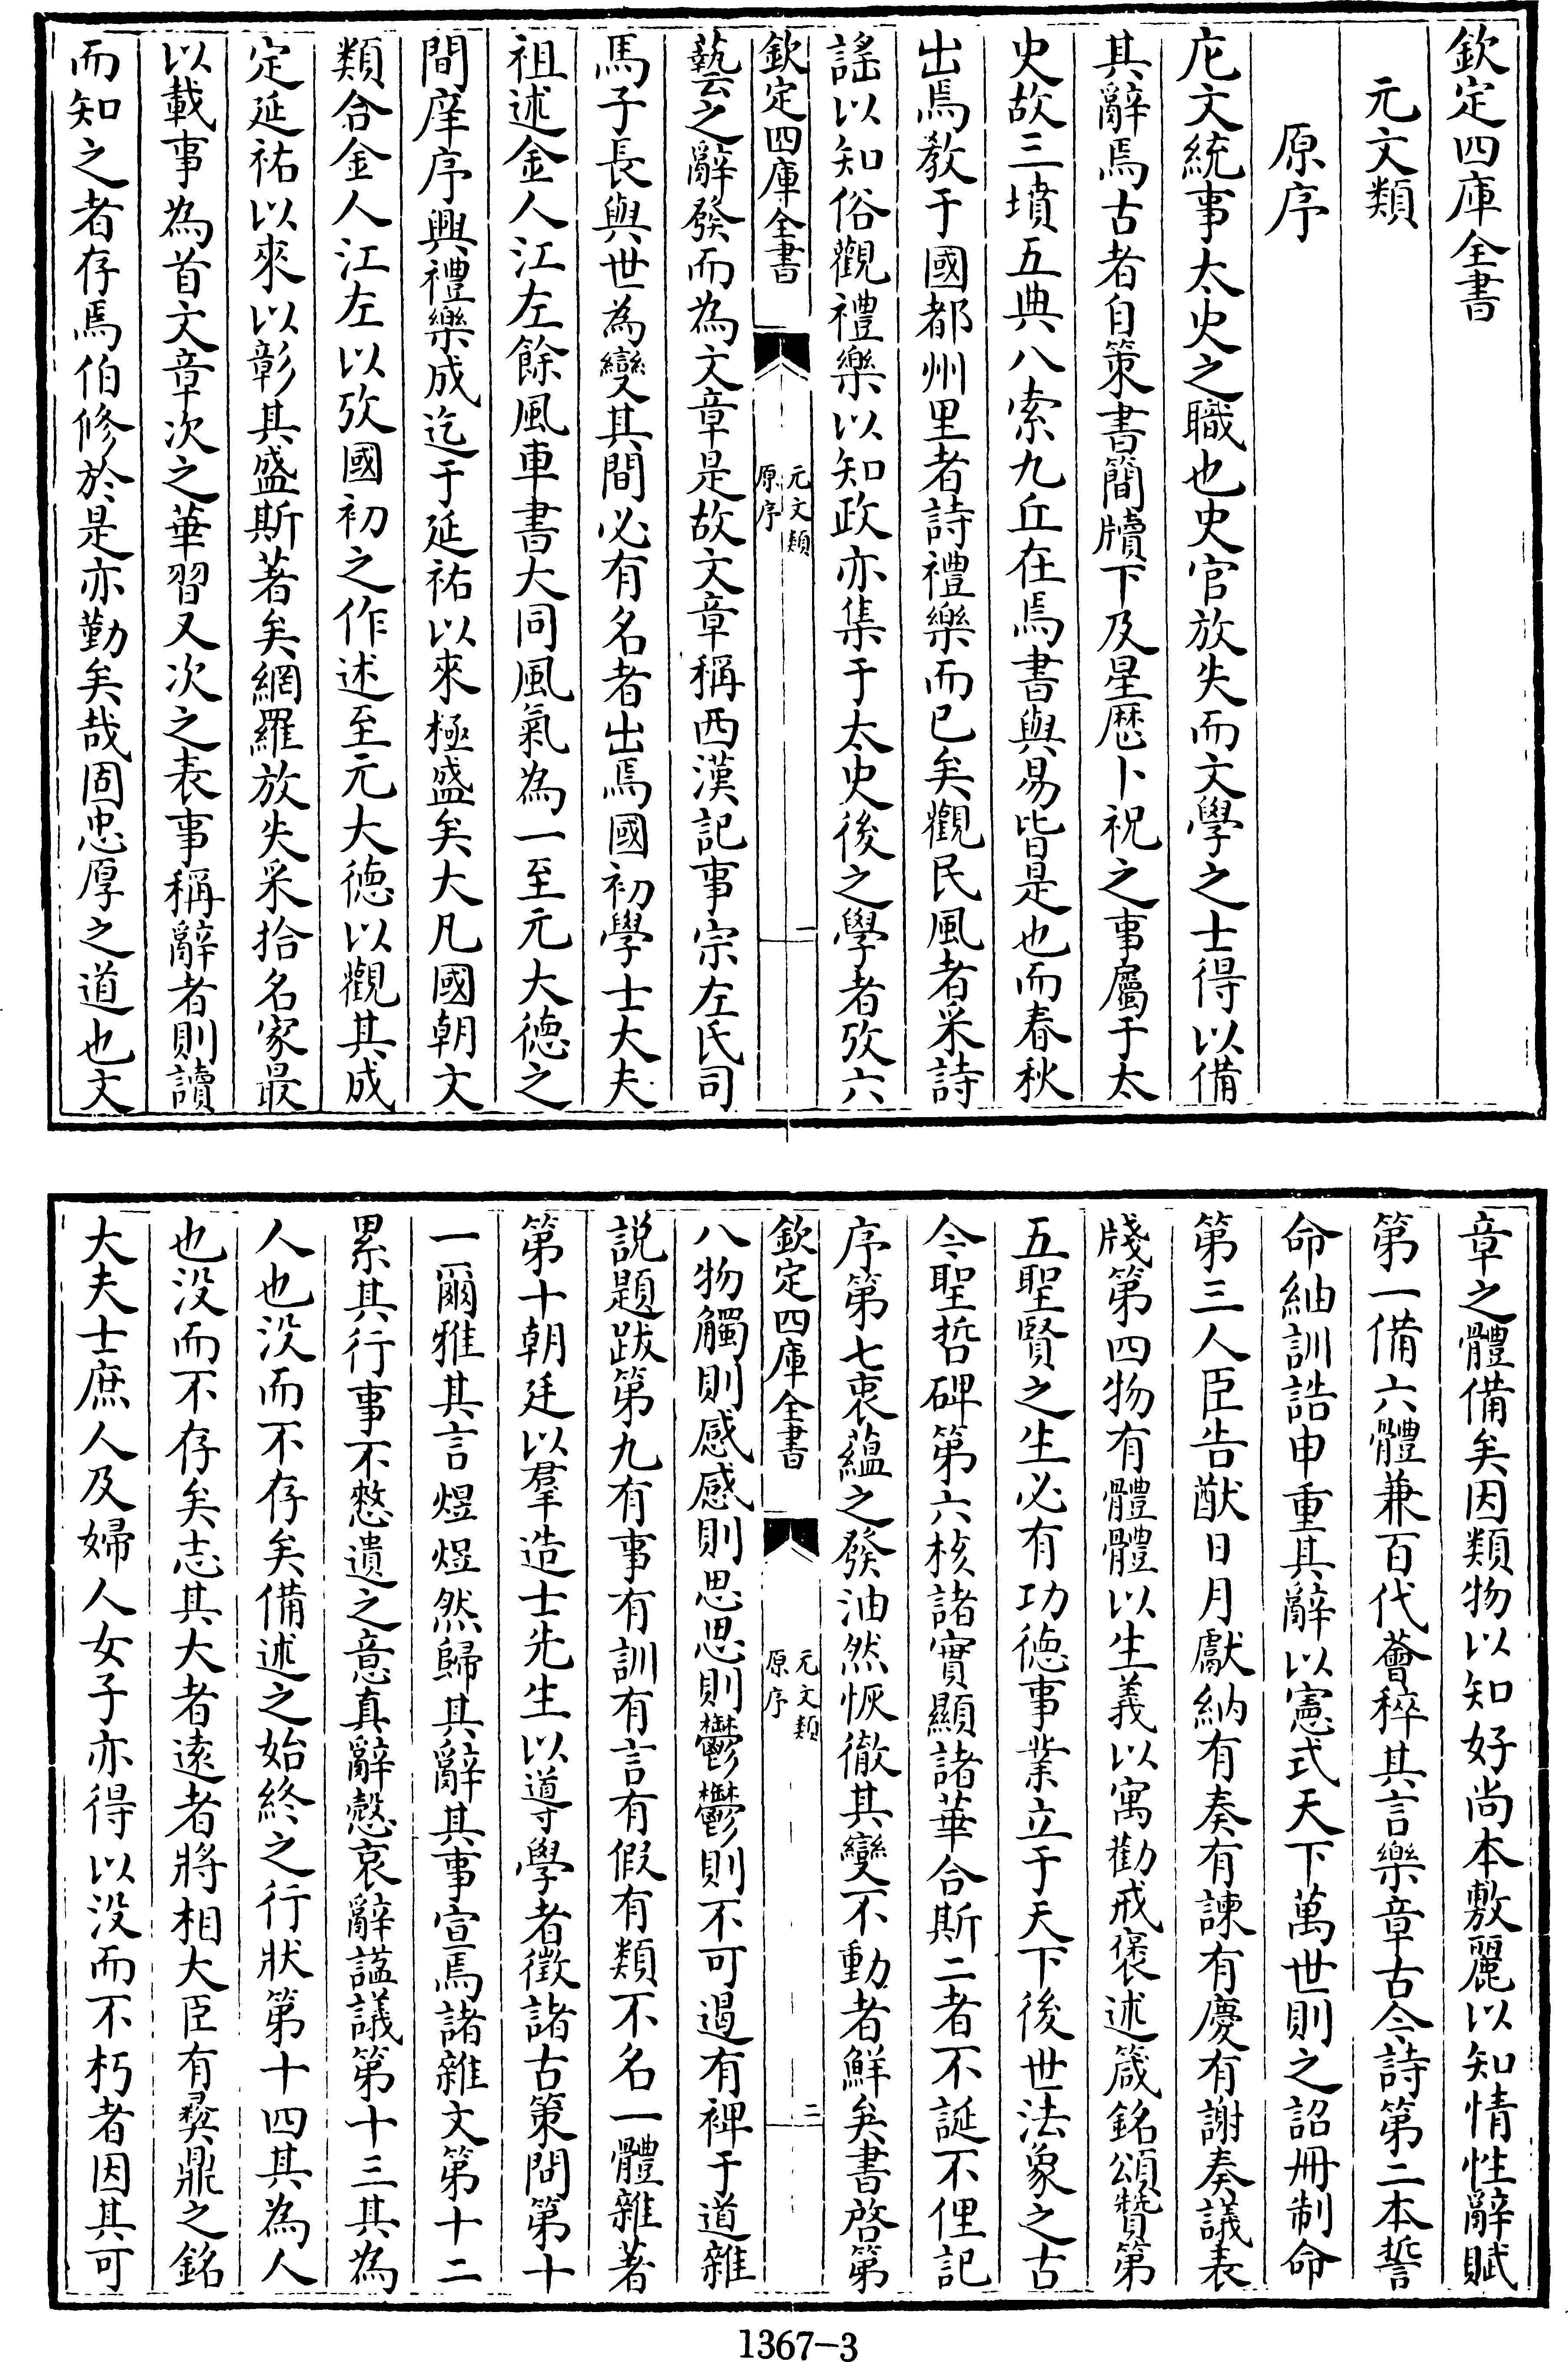 欽定四庫全書
元文類
原序
庀文統事太史之職也史官放失而文學之士得以備
其辭焉古者自策書簡牘下及星歴卜祝之事屬于太
史故三墳五典八索九丘在焉書與易皆是也而春秋
出焉教于國都州里者詩禮樂而已矣觀民風者采詩
謡以知俗觀禮樂以知政亦集于太史後之學者攷六
欽定四庫全書
元文類
原序
一
藝之辭發而為文章是故文章稱西漢記事宗左氏司
馬子長與世為變其間必有名者出焉國初學士大夫
祖述金人江左餘風車書大同風氣為一至元大德之
間庠序興禮樂成迄于延祐以來極盛矣大凡國朝文
類合金人江左以攷國初之作述至元大德以觀其成
定延祐以來以彰其盛斯著矣網羅放失采拾名家最
以載事為首文章次之華習又次之表事稱辭者則讀
而知之者存焉伯修於是亦勤矣哉固忠厚之道也文
章之體備矣因類物以知好尚本敷麗以知情性辭賦
第一備六體兼百代薈稡其言樂章古今詩第二本誓
命紬訓誥申重其辭以憲式天下萬世則之詔冊制命
第三人臣告猷日月獻納有奏有諫有慶有謝奏議表
牋第四物有體體以生義以寓勸戒褒述箴銘頌贊第
五聖賢之生必有功德事業立于天下後世法象之古
今聖哲碑第六核諸實顯諸華合斯二者不誕不俚記
序第七衷蘊之發油然恢徹其變不動者鮮矣書啓第
欽定四庫全書
元文類
原序
二
八物觸則感感則思思則鬱鬱則不可遏有裨于道雜
說題跋第九有事有訓有言有假有類不名一體雜著
第十朝廷以羣造士先生以導學者徵諸古策問第十
一爾雅其言煜煜然歸其辭其事宣焉諸雜文第十二
累其行事不憖遺之意真辭慤哀辭諡議第十三其為
人也没而不存矣備述之始終之行狀第十四其為人
也没而不存矣志其大者遠者將相大臣有彛鼎之銘
大夫士庶人及婦人女子亦得以没而不朽者因其可
1367-3